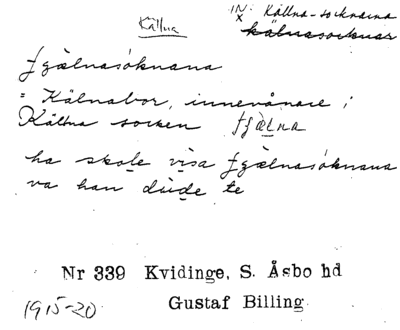 Källna
IN: Källna-socknarna
x
kälnasocknar
fgælnasóknana
= Kälnabor, innevånare i
Källna socken fjælna
ha skole visa fgælnasóknana
va han dúde te
Nr 339 Kvidinge, S. Åsbo hd
1915-20 Gustaf Billing